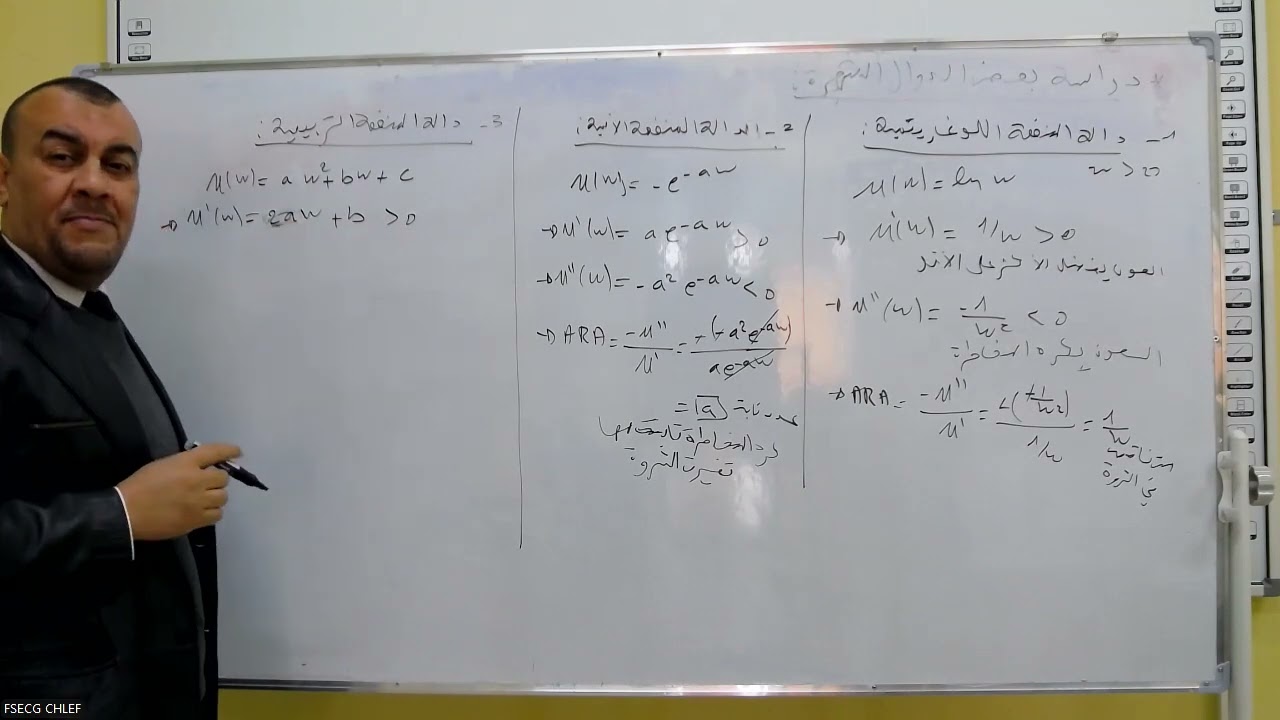 * دراسة بعض الدوال الشهيرة:
1- دالة المنفعة اللوغاريتمية:
w > 0
u(w) = ln w
→ u'(w) = 1/w > 0
العون يفضل الأكثر على الأقل
→ u''(w) = -1/w² < 0
العون يكره المخاطرة
→ ARA = -u''/u' = -(-1/w²)/(1/w) = 1/w
متناقصة
في الثروة
2- الدالة المنفعة الأسية:
u(w) = -e^-aw
→ u'(w) = a e^-aw > 0
→ u''(w) = -a² e^-aw < 0
→ ARA = -u''/u' = -(-a² e^-aw)/(a e^-aw)
= a ثابتة
كره المخاطرة ثابت مهما
تغيرت الثروة
3- دالة المنفعة التربيعية:
u(w) = a w² + bw + c
→ u'(w) = 2aw + b > 0
FSECG CHLEF